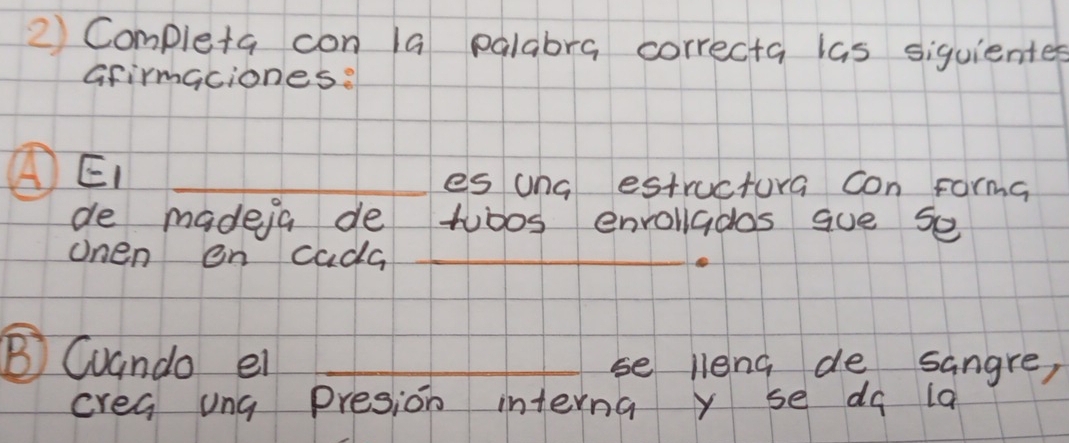 2) Completa con la palabra correcta las siguientes
afirmaciones:
A El ____________ es una estructura con forma
de madeja de tubos enrollados que se
unen en cada ____________.
B Cuando el ____________ se llena de sangre,
crea una presión interna y se da la